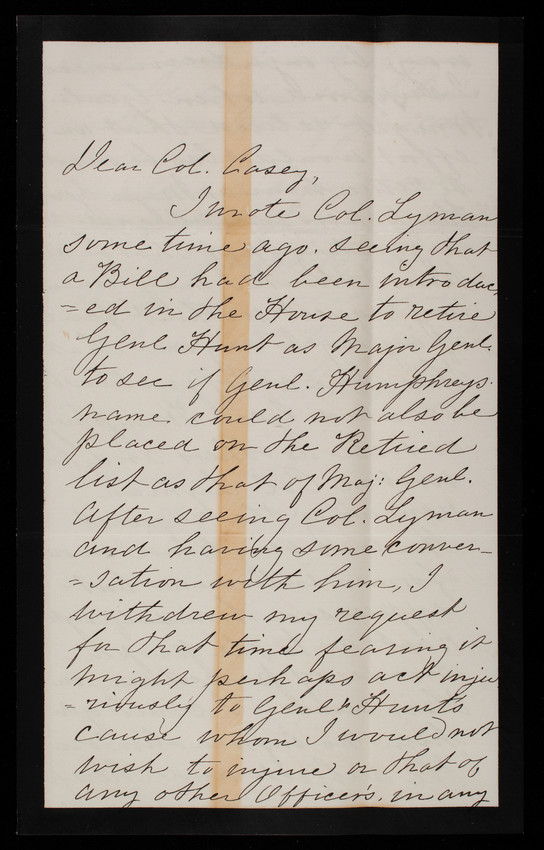 Dear Col. Casey,
I wrote Col. Lyman
some time ago. seeing that
a Bill had been introduc
=ed in the House to retire
Genl Hunt as Major Genl.
to see if Genl. Humphreys.
name could not also be
placed on the Retired
list as that of Maj: Genl.
After seeing Col. Lyman
and having some conver-
=sation with him, I
withdrew my request
for that time fearing it
might perhaps act inju
=riously to Genl Hunt's
cause whom I would not
wish to injure or that of
any other Officer's, in any